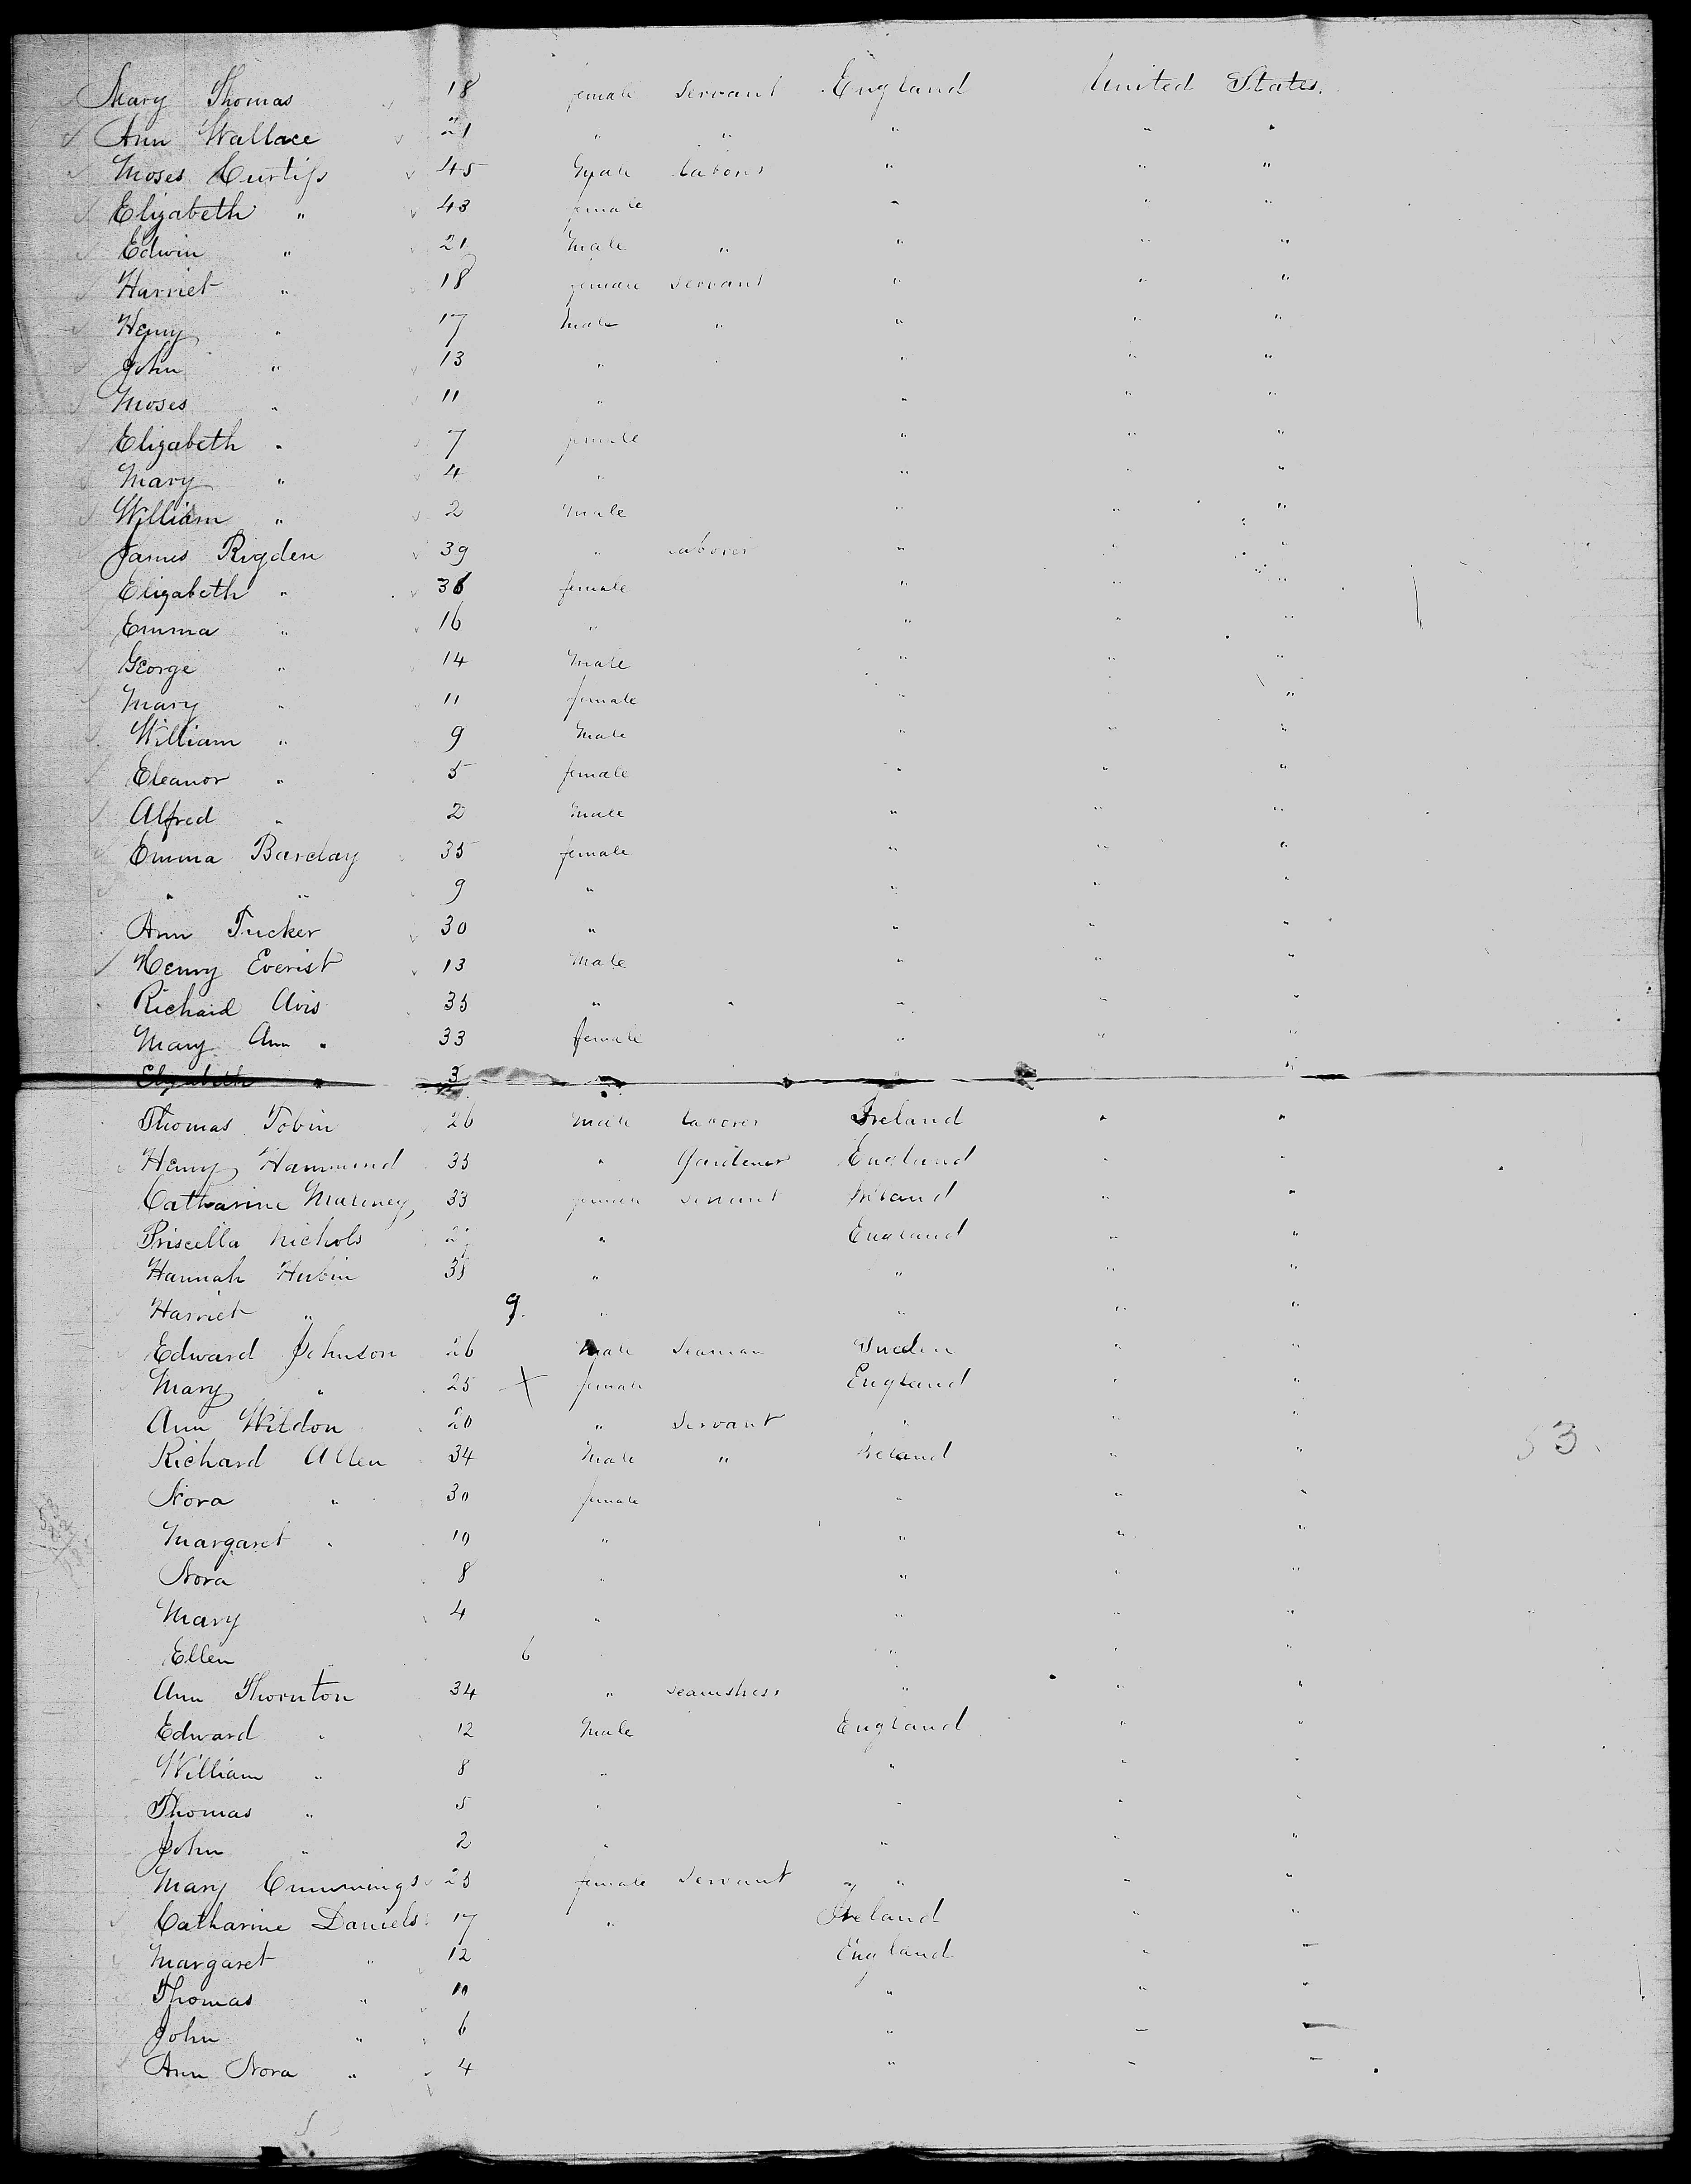 Mary Thomas 18 female Servant England United States.
Ann Wallace 21 " " " " "
Moses Curtiss 45 Male labour " " "
Elizabeth " 43 female " " "
Edwin " 21 Male " " " "
Harriet " 18 female Servant " " "
Henry " 17 Male " " " "
John " 13 " " " "
Moses " 11 " " " "
Elizabeth " 7 female " " "
Mary " 4 " " " "
William " 2 Male " " "
James Rigden 39 " laborer " " "
Elizabeth " 36 female " " "
Emma " 16 " " " "
George " 14 Male " " "
Mary " 11 female " " "
William " 9 Male " " "
Eleanor " 5 female " " "
Alfred " 2 Male " " "
Emma Barclay 35 female " " "
" " 9 " " " "
Ann Tucker 30 " " " "
Henry Everist 13 Male " " "
Richard Avis 35 " " " " "
Mary Ann " 33 female " " "
Elizabeth " 3 " " " "
Thomas Tobin 26 Male laborer Ireland " "
Henry Hammond 35 " Gardener England " "
Catharine 33 female servant Ireland " "
Priscella Nichols " England " "
Hannah Hubin 35 " " " "
Harriet " 9. " " " "
Edward Johnson 26 Male Seaman Sweden " "
Mary " 25 X female England " "
Ann Wildon 20 " Servant " " "
Richard Allen 34 Male " Ireland " " 53
Nora " 30 female " " "
Margaret " 10 " " " "
Nora 8 " " " "
Mary 4 " " " "
Ellen 6 " " "
Ann Thornton 34 " Seamstress " " "
Edward " 12 Male England " "
William " 8 " " " "
Thomas " 5 " " " "
John " 2 " " " "
Mary Cummings 23 female Servant " " " "
Catharine Daniels 17 " Ireland " "
Margaret " 12 England " "
Thomas " 10 " " "
John " 6 " " "
Ann Nora " 4 " " "